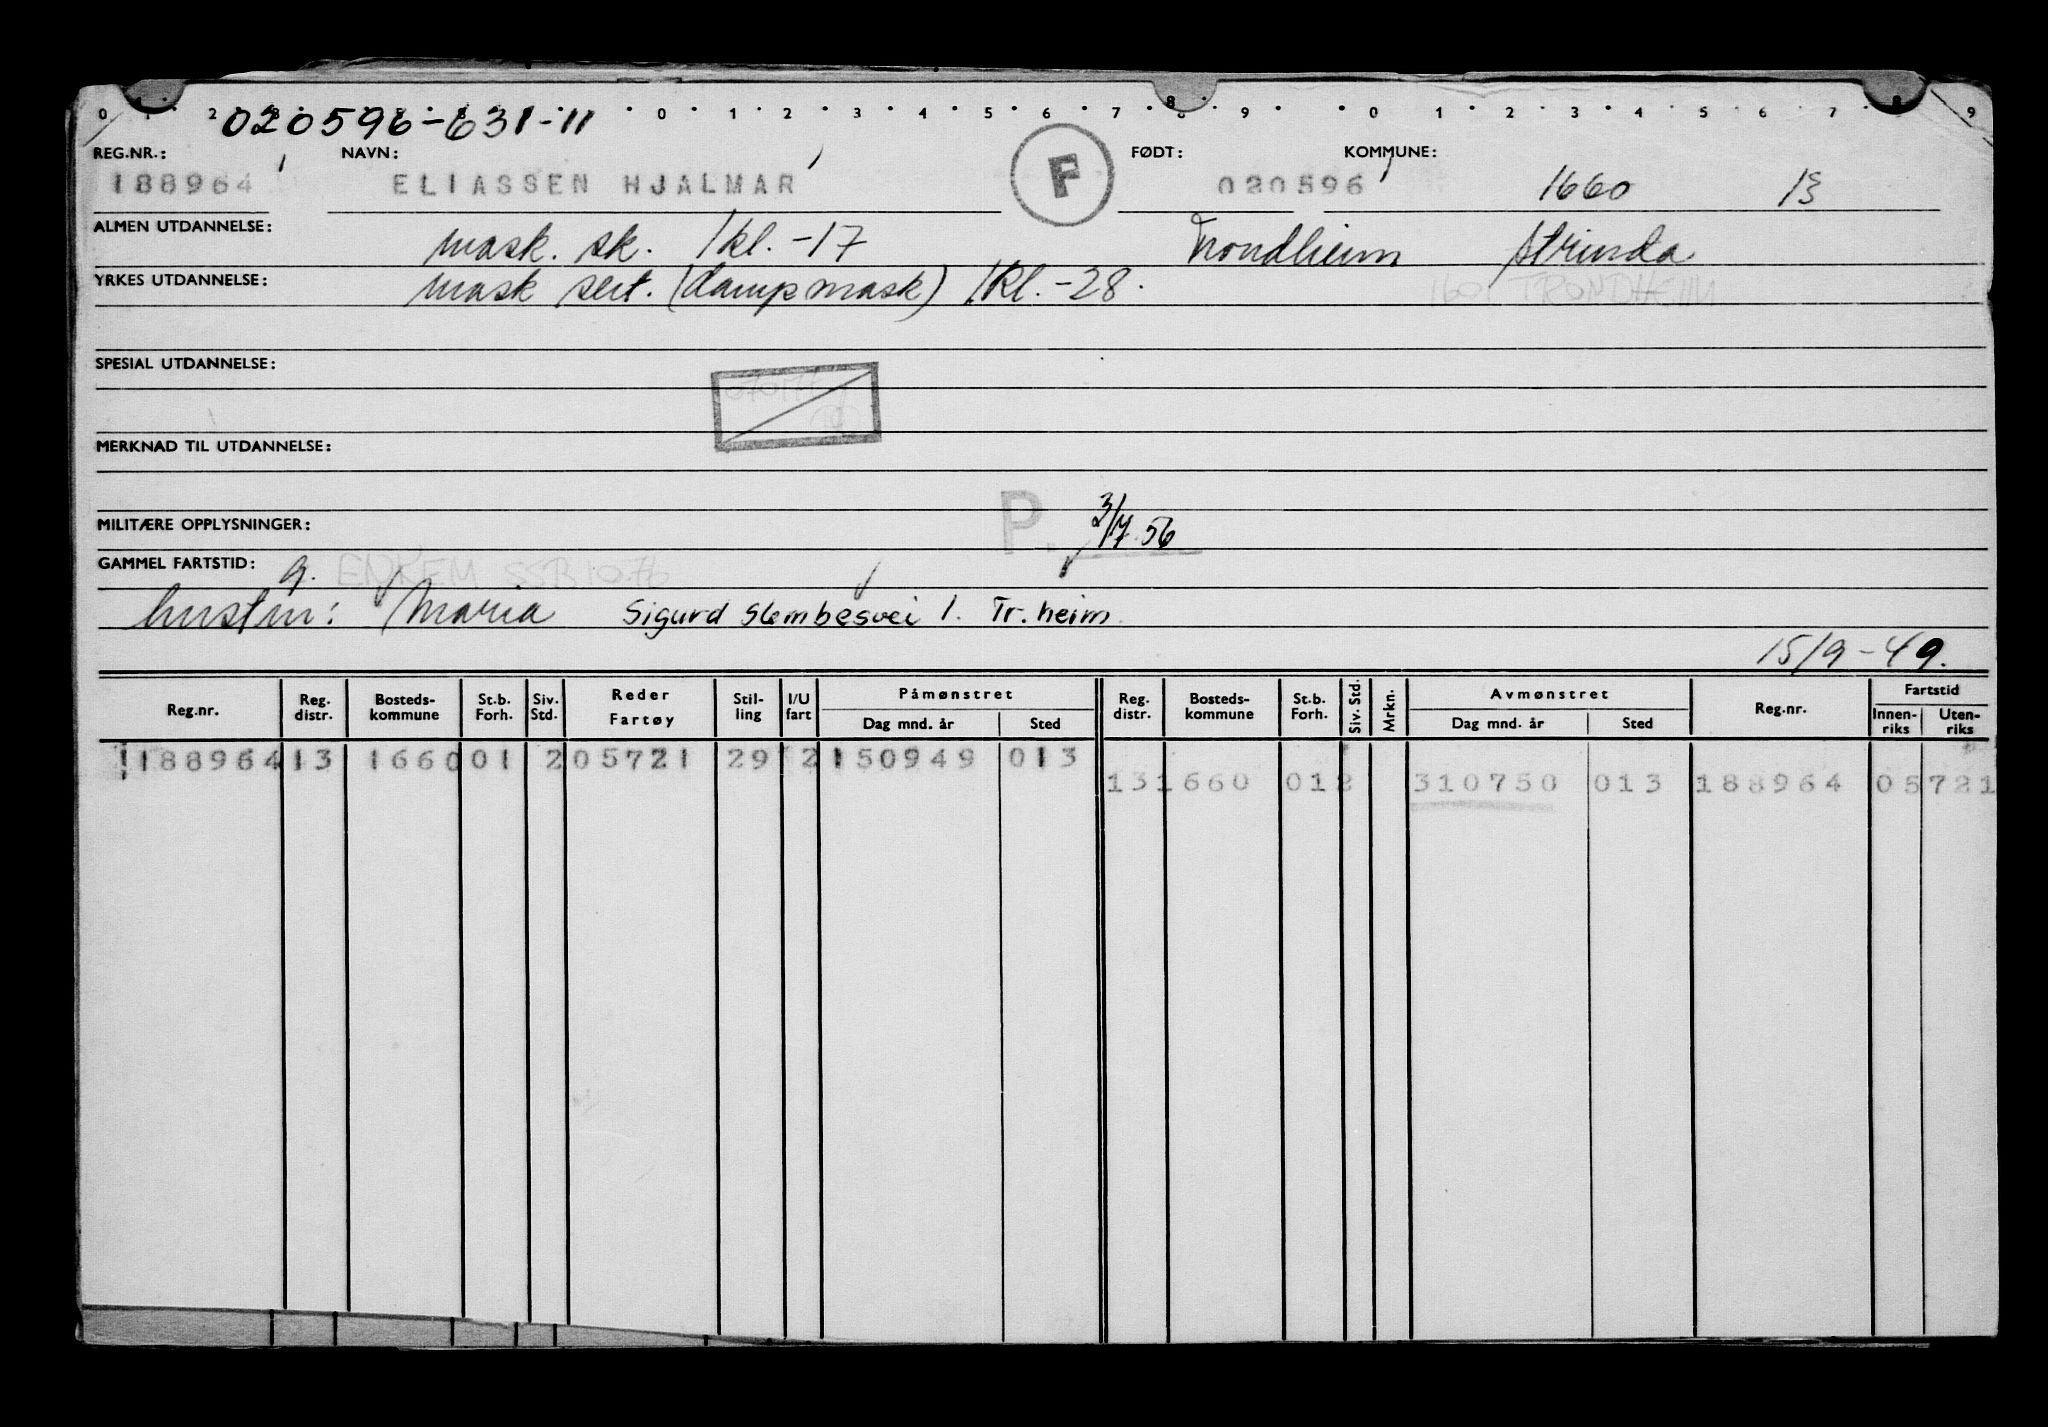 0 1 2 0 1 2 3 4 5 6 7 8 9 0 1 2 3 4 5 6 7 8 9
020596-631-11
REG.NR.: NAVN: FØDT: KOMMUNE:
188964 ELIASSEN HJALMAR F 020596 1660 13
ALMEN UTDANNELSE: mask. sk. 1 kl. -17 Trondheim Strinda
YRKES UTDANNELSE: mask sert. (dampmask) 1 kl. -28. 1601 TRONDHEIM
SPESIAL UTDANNELSE:
MERKNAD TIL UTDANNELSE:
MILITÆRE OPPLYSNINGER: P. 3/7.56
GAMMEL FARTSTID: g. ENKEM SSB 10.76
hustru: Maria Sigurd Slembesvei 1. Tr.heim.
15/9-49.
Reg.nr. Reg. distr. Bosteds-kommune St.b. Forh. Siv. Std. Reder Fartøy Stil-ling I/U fart Påmønstret Dag mnd. år Sted Reg. distr. Bosteds-kommune St.b. Forh. Siv. Std. Mrkn. Avmønstret Dag mnd. år Sted Reg.nr. Fartstid Innen-riks Uten-riks
188964 13 1660 01 2 05721 29 2 150949 013
13 1660 01 2 310750 013 188964 05721